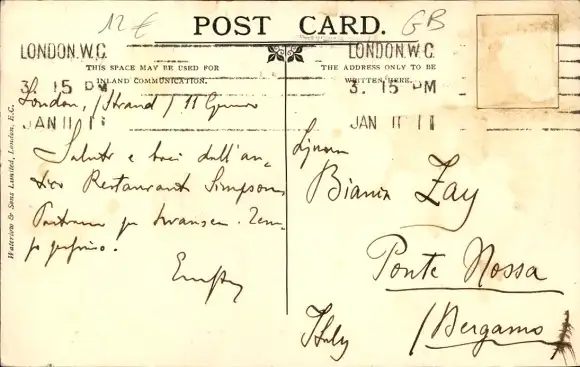 12 € GB
POST CARD.
LONDON.W.C. LONDON.W.C.
THIS SPACE MAY BE USED FOR
INLAND COMMUNICATION.
THE ADDRESS ONLY TO BE
WRITTEN HERE.
3. 15 PM 3. 15 PM
JAN 11 11 JAN 11 11
London, (Strand) 11
Saluti e baci dall'an-
tico Restaurant Simpson.
Swansea. Tem-
po
Waterlow & Sons Limited, London, E.C.
Bianca Zay
Ponte Nossa
(Bergamo)
Italy